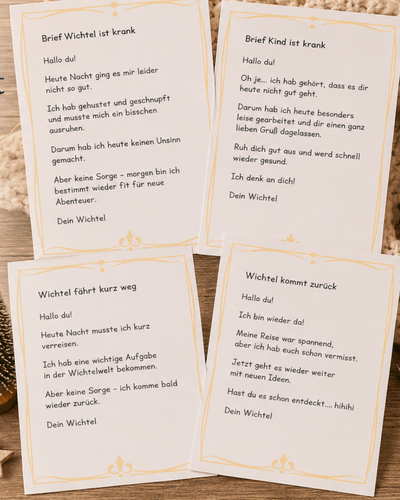 Brief Wichtel ist krank
Hallo du!
Heute Nacht ging es mir leider
nicht so gut.
Ich hab gehustet und geschnupft
und musste mich ein bisschen
ausruhen.
Darum hab ich heute keinen Unsinn
gemacht.
Aber keine Sorge – morgen bin ich
bestimmt wieder fit für neue
Abenteuer.
Dein Wichtel
Brief Kind ist krank
Hallo du!
Oh je... ich hab gehört, dass es dir
heute nicht gut geht.
Darum hab ich heute besonders
leise gearbeitet und dir einen ganz
lieben Gruß dagelassen.
Ruh dich gut aus und werd schnell
wieder gesund.
Ich denk an dich!
Dein Wichtel
Wichtel fährt kurz weg
Hallo du!
Heute Nacht musste ich kurz
verreisen.
Ich hab eine wichtige Aufgabe
in der Wichtelwelt bekommen.
Aber keine Sorge – ich komme bald
wieder zurück.
Dein Wichtel
Wichtel kommt zurück
Hallo du!
Ich bin wieder da!
Meine Reise war spannend,
aber ich hab euch schon vermisst.
Jetzt geht es wieder weiter
mit neuen Ideen.
Hast du es schon entdeckt.... hihihi
Dein Wichtel